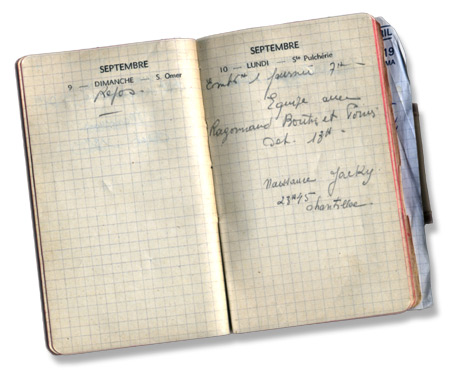 SEPTEMBRE
9 — DIMANCHE — S. Omer
Repos.
SEPTEMBRE
10 — LUNDI — Ste Pulchérie
7H
Equipe avec
Ragonnaud
et
13H
Naissance Jacky
23H45
Chantilles